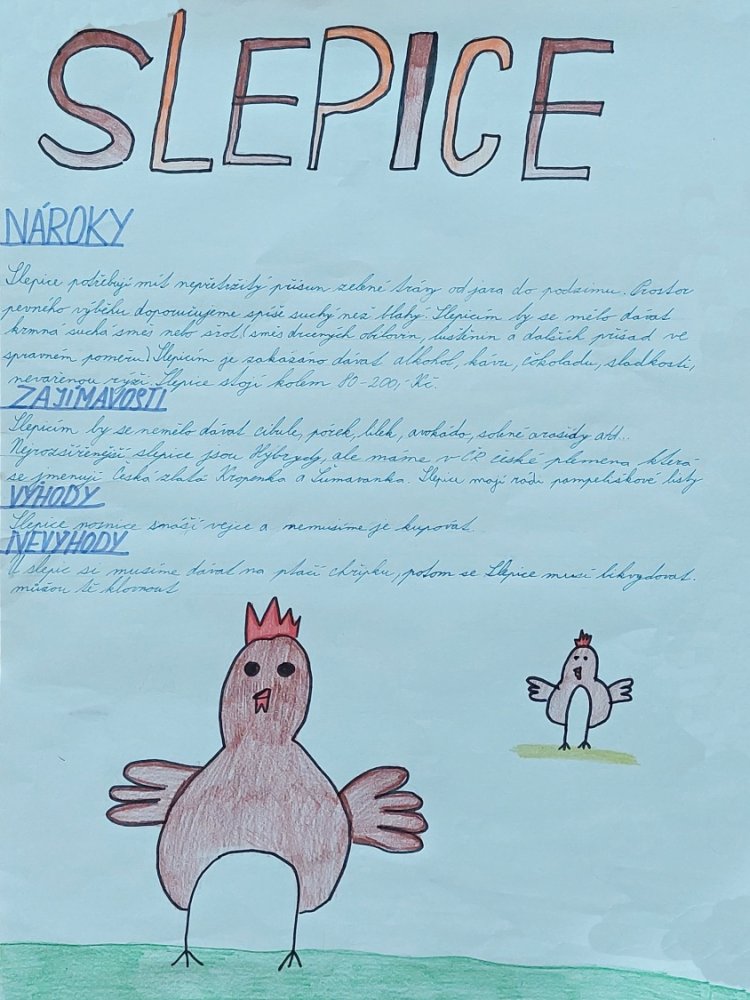 SLEPICE
NÁROKY
Slepice potřebují mít nepřetržitý přísun zelené trávy od jara do podzimu. Prostor
pevného výběhu doporučujeme spíše suchý než blahý. Slepicím by se mělo dávat
krmná suchá směs nebo šrot (směs drcených obilovin, luštěnin a dalších přísad ve
správném poměru). Slepicím je zakázáno dávat alkohol, kávu, čokoládu, sladkosti,
nevařenou rýži. Slepice stojí kolem 80-200,- Kč.
ZAJÍMAVOSTI
Slepicím by se nemělo dávat cibule, pórek, lilek, avokádo, solené arašídy atd...
Nejrozšířenější slepice jsou Hybrydy, ale máme v ČR české plemena která
se jmenují Česká zlatá Kropenka a Šumavanka. Slepice mají rádi pampeliškové listy
VÝHODY
Slepice nosnice snáší vejce a nemusíme je kupovat.
NEVÝHODY
U slepic si musíme dávat na ptačí chřipku, potom se Slepice musí likvydovat.
můžou tě klovnout